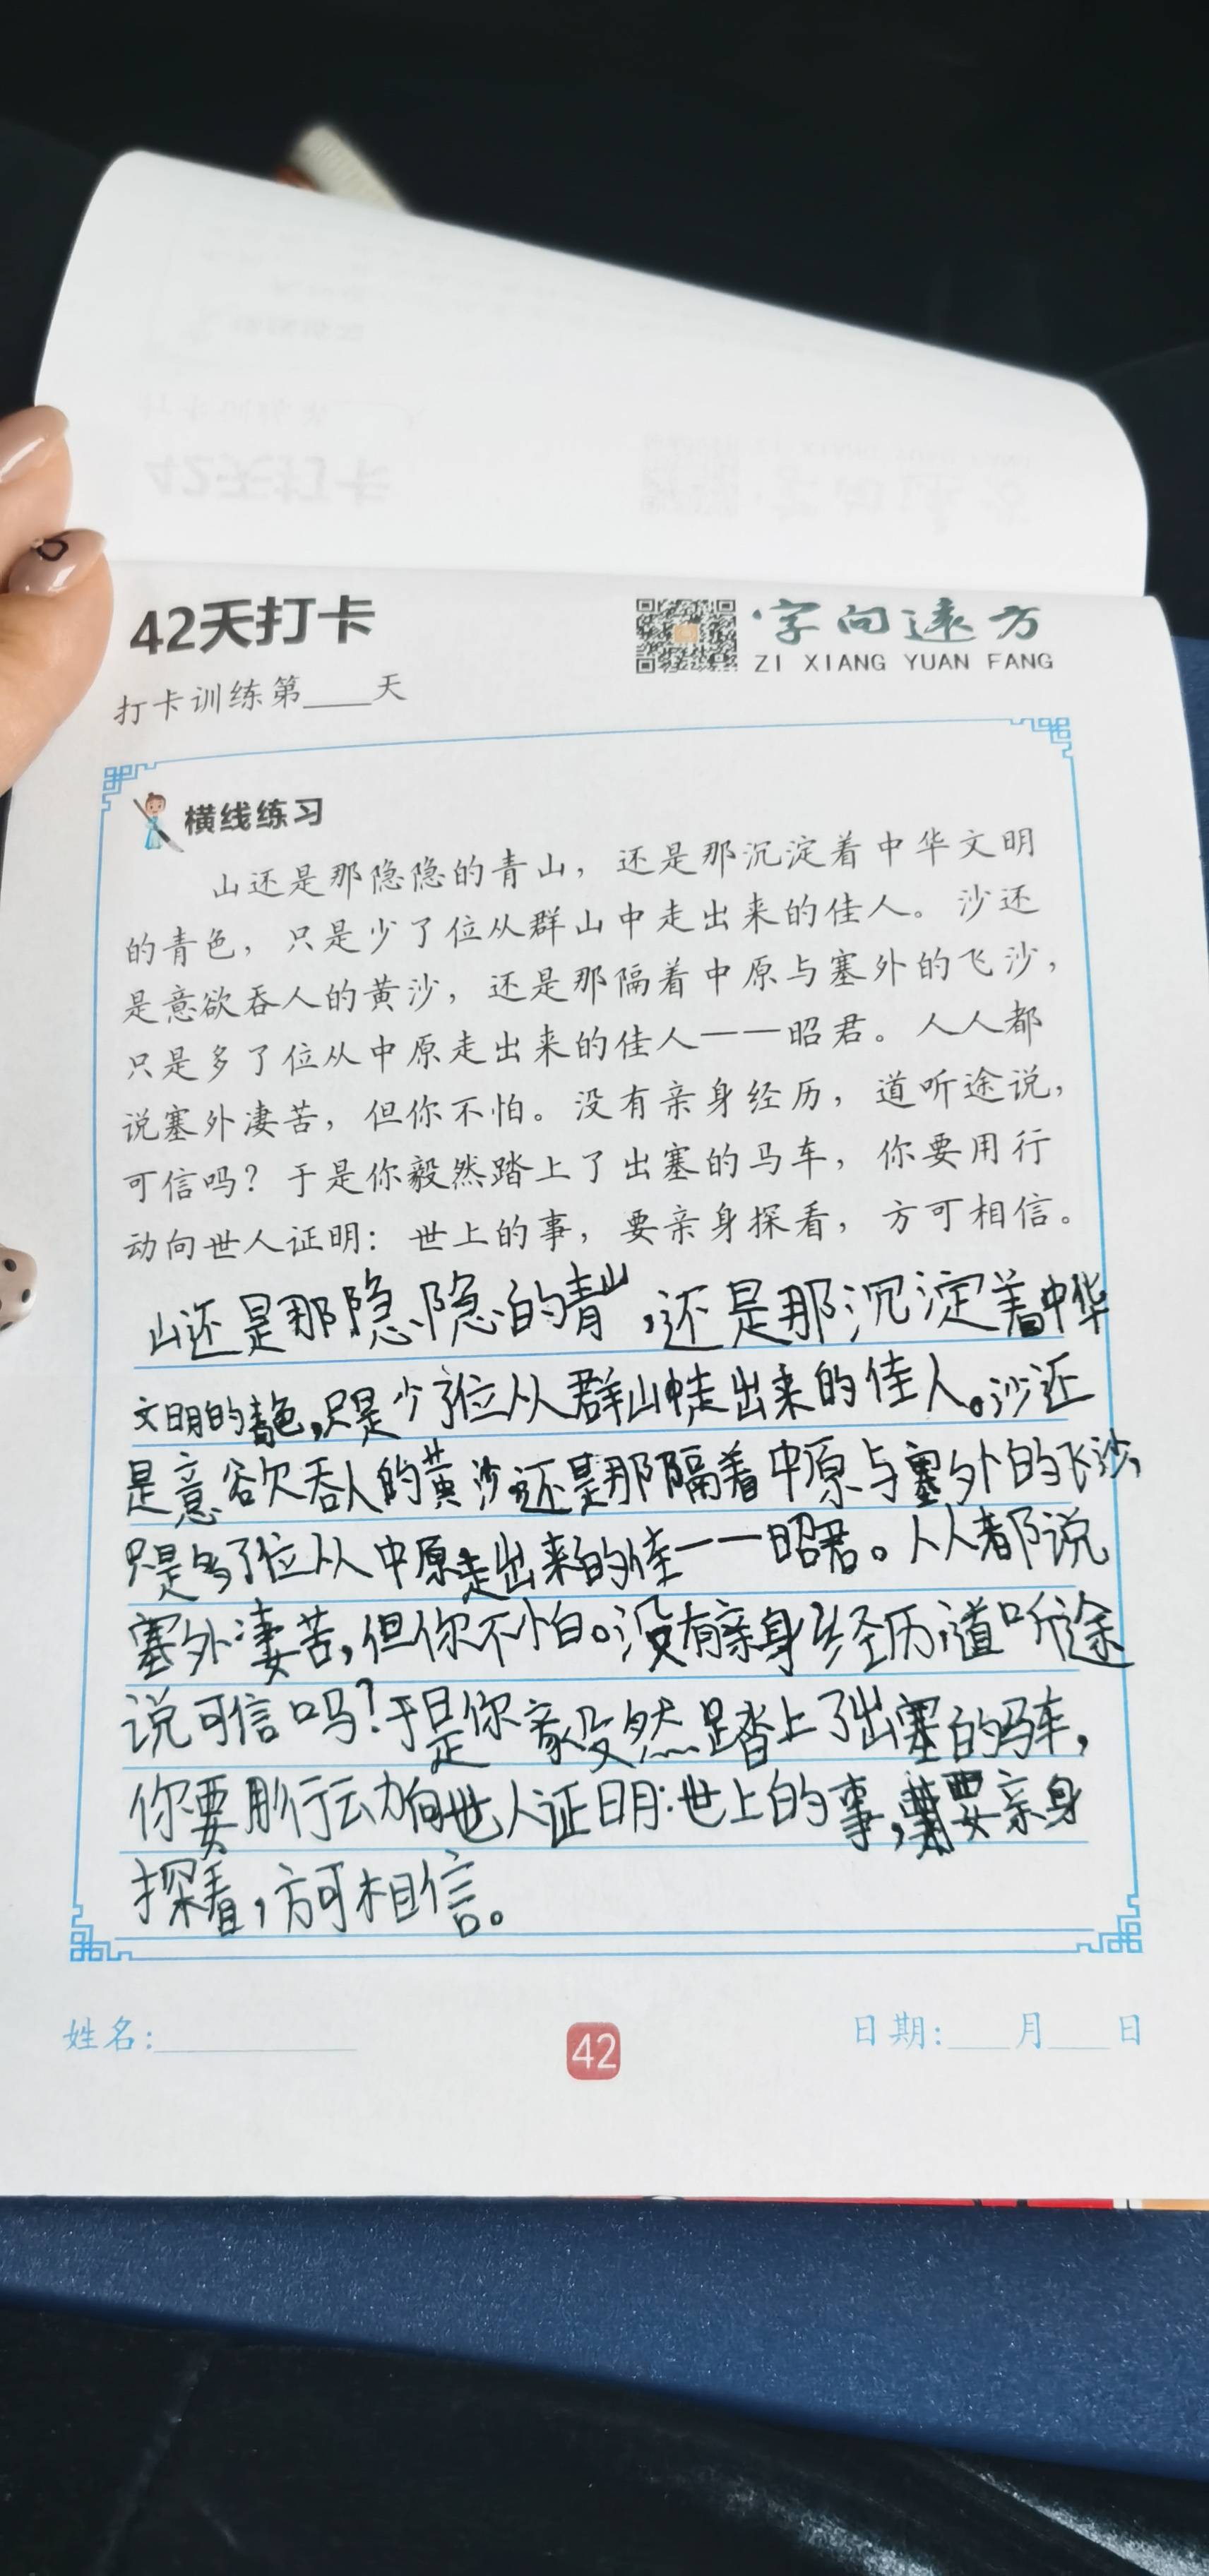 42天打卡
字向远方
ZI XIANG YUAN FANG
打卡训练第____天
横线练习
山还是那隐隐的青山，还是那沉淀着中华文明
的青色，只是少了位从群山中走出来的佳人。沙还
是意欲吞人的黄沙，还是那隔着中原与塞外的飞沙，
只是多了位从中原走出来的佳人——昭君。人人都
说塞外凄苦，但你不怕。没有亲身经历，道听途说，
可信吗？于是你毅然踏上了出塞的马车，你要用行
动向世人证明：世上的事，要亲身探看，方可相信。
山还是那隐隐的青山，还是那沉淀着中华
文明的青色，只是少了位从群山中走出来的佳人。沙还
是意欲吞人的黄沙，还是那隔着中原与塞外的飞沙，
只是多了位从中原走出来的佳——昭君。人人都说
塞外凄苦，但你不怕。没有亲身经历，道听途
说可信吗？于是你毅然踏上了出塞的马车，
你要用行动向世人证明：世上的事，要亲身
探看，方可相信。
姓名：
42
日期：___月___日